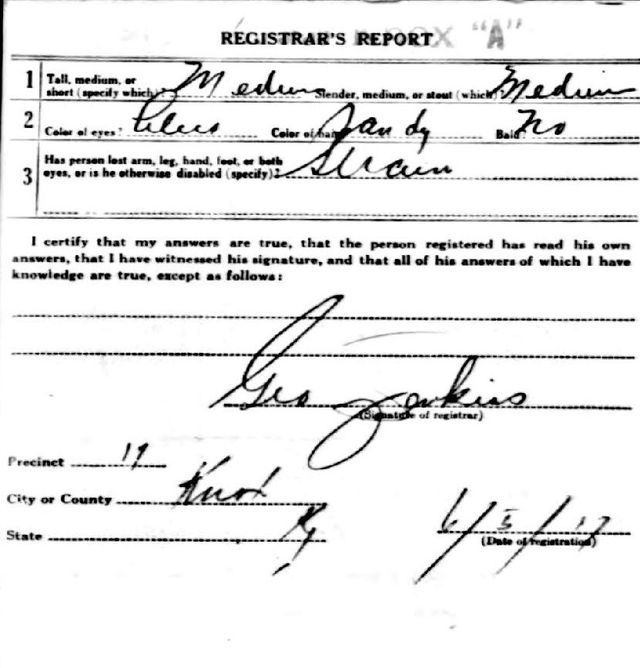 REGISTRAR'S REPORT "A"
1 Tall, medium, or
short (specify which)? Medium Slender, medium, or stout (which)? Medium
2 Color of eyes? Blue Color of hair? Sandy Bald? No
Has person lost arm, leg, hand, foot, or both
3 eyes, or is he otherwise disabled (specify)?
I certify that my answers are true, that the person registered has read his own
answers, that I have witnessed his signature, and that all of his answers of which I have
knowledge are true, except as follows:
Geo Jenkins
(Signature of registrar)
Precinct 19
City or County Knox
State Ky 6/5/17
(Date of registration)